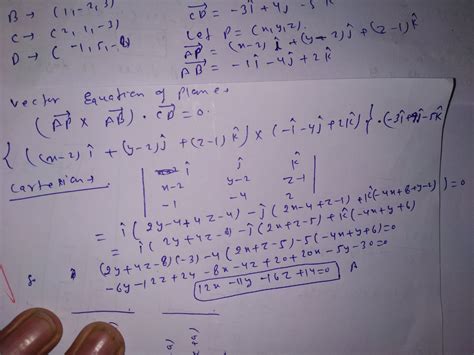 B → (1, -2, 3)
C → (2, 1, -3)
D → (-1, 5, -8)
CD = -3î + 4ĵ - 5k̂
Let P = (x, y, z)
AP = (x-2)î + (y-2)ĵ + (z-1)k̂
AB = -1î - 4ĵ + 2k̂
Vector Equation of plane,
(AP × AB) · CD = 0.
{ ((x-2)î + (y-2)ĵ + (z-1)k̂) × (-î - 4ĵ + 2k̂) } · (-3î + 4ĵ - 5k̂)
Cartesian,
î ĵ k̂
x-2 y-2 z-1
-1 -4 2
= î(2y-4+4z-4) - ĵ(2x-4+z-1) + k̂(-4x+8+y-2)
= î(2y+4z-8) - ĵ(2x+z-5) + k̂(-4x+y+6)
(2y+4z-8)(-3) - 4(2x+z-5) - 5(-4x+y+6) = 0
-6y-12z+24-8x-4z+20+20x-5y-30=0
12x - 11y - 16z + 14 = 0